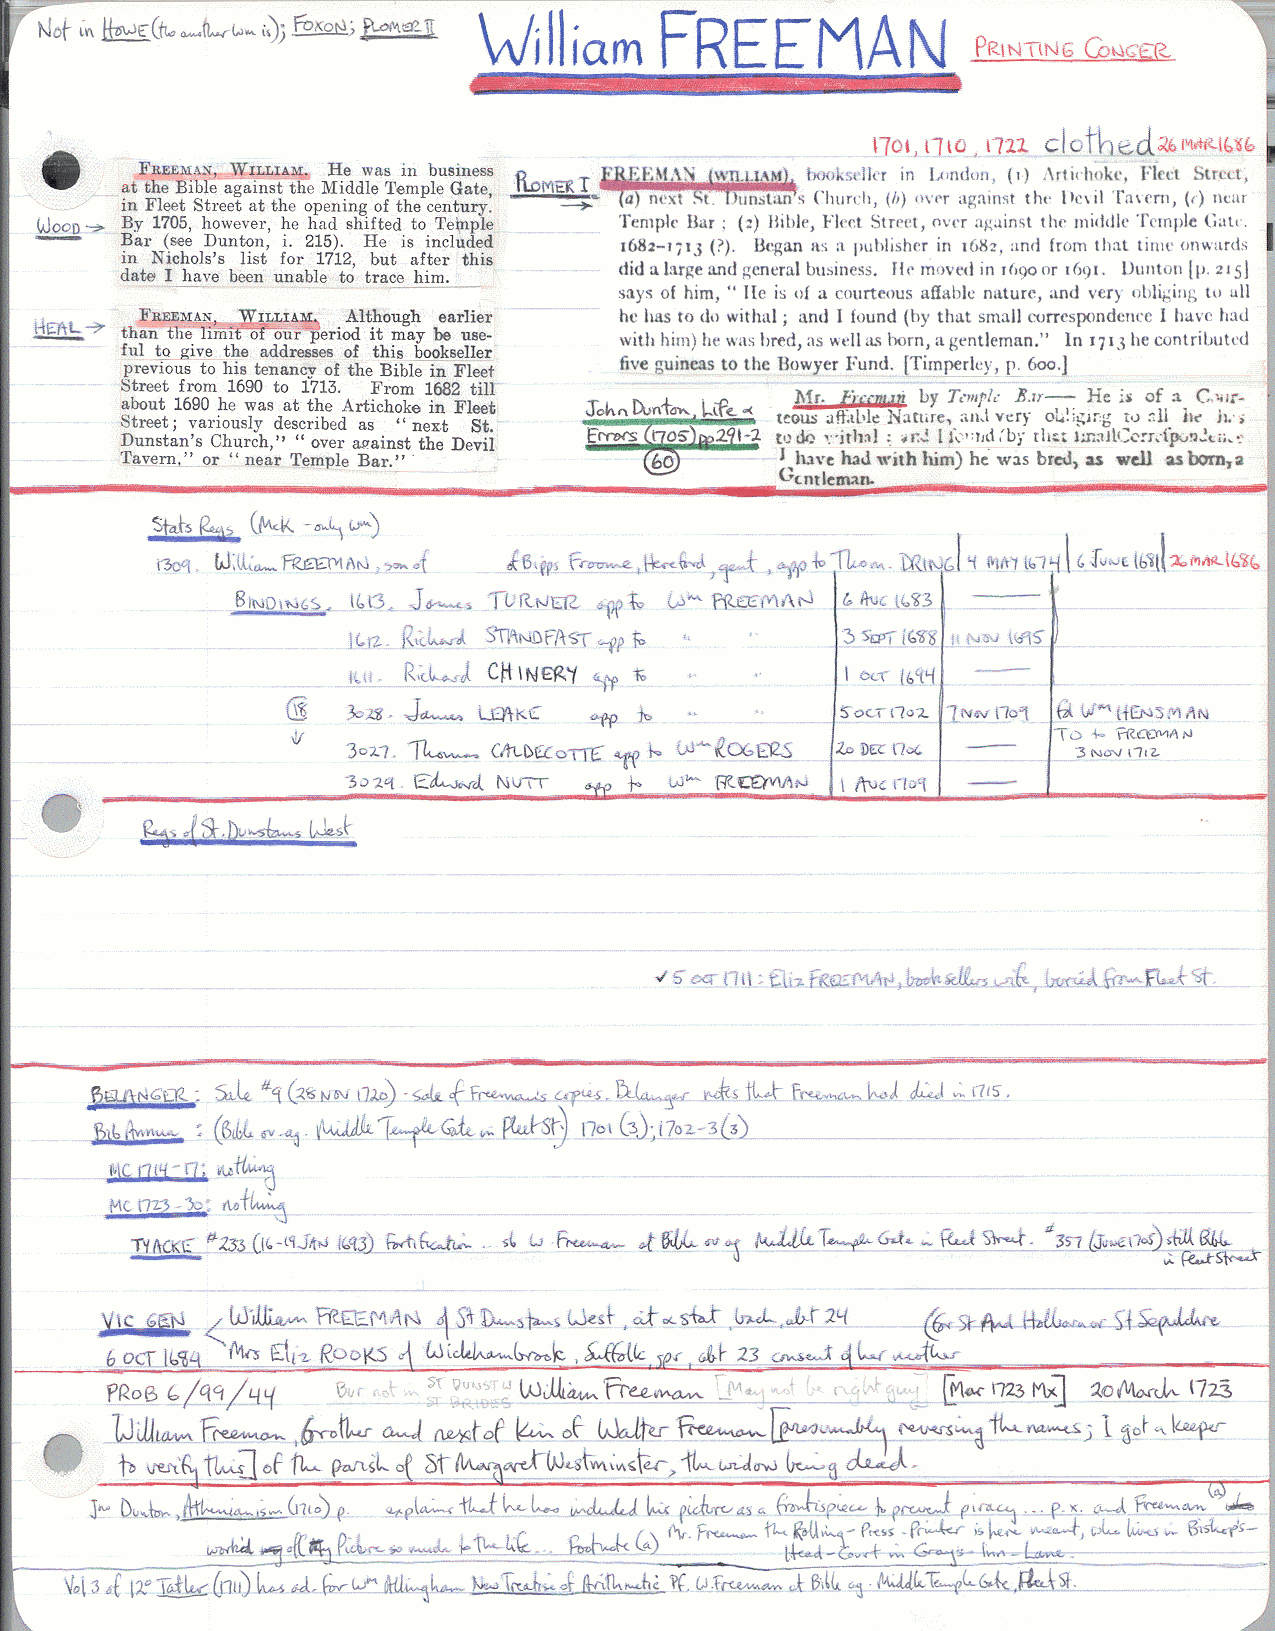 Not in HOWE (tho another Wm is); FOXON; PLOMER II
William FREEMAN
PRINTING CONGER
1701, 1710, 1722 clothed 26 MAR 1686
WOOD →
FREEMAN, WILLIAM. He was in business
at the Bible against the Middle Temple Gate,
in Fleet Street at the opening of the century.
By 1705, however, he had shifted to Temple
Bar (see Dunton, i. 215). He is included
in Nichols's list for 1712, but after this
date I have been unable to trace him.
HEAL →
FREEMAN, WILLIAM. Although earlier
than the limit of our period it may be use-
ful to give the addresses of this bookseller
previous to his tenancy of the Bible in Fleet
Street from 1690 to 1713. From 1682 till
about 1690 he was at the Artichoke in Fleet
Street; variously described as "next St.
Dunstan's Church," "over against the Devil
Tavern," or "near Temple Bar."
PLOMER I →
FREEMAN (WILLIAM), bookseller in London, (1) Artichoke, Fleet Street,
(a) next St. Dunstan's Church, (b) over against the Devil Tavern, (c) near
Temple Bar; (2) Bible, Fleet Street, over against the middle Temple Gate.
1682-1713 (?). Began as a publisher in 1682, and from that time onwards
did a large and general business. He moved in 1690 or 1691. Dunton [p. 215]
says of him, "He is of a courteous affable nature, and very obliging to all
he has to do withal; and I found (by that small correspondence I have had
with him) he was bred, as well as born, a gentleman." In 1713 he contributed
five guineas to the Bowyer Fund. [Timperley, p. 600.]
John Dunton, Life &
Errors (1705) pp 291-2
60
Mr. Freeman by Temple Bar— He is of a Cour-
teous affable Nature, and very obliging to all he has
to do withal; and I found (by that small Correspondence
I have had with him) he was bred, as well as born, a
Gentleman.
Stats Regs (McK - only Wm)
1309. William FREEMAN, son of of Bipps Froome, Hereford, gent, app to Thom. DRING | 4 MAY 1674 | 6 JUNE 1681 | 26 MAR 1686
BINDINGS. 1613. James TURNER app to Wm FREEMAN | 6 AUG 1683 | —
1612. Richard STANDFAST app to " " | 3 SEPT 1688 | 11 NOV 1695
1611. Richard CHINERY app to " " | 1 OCT 1694 | —
18 ↓ 3028. James LEAKE app to " " | 5 OCT 1702 | 7 NOV 1709 | fd Wm HENSMAN
3027. Thomas CALDECOTTE app to Wm ROGERS | 20 DEC 1706 | — | TO to FREEMAN
3 NOV 1712
3029. Edward NUTT app to Wm FREEMAN | 1 AUG 1709 | —
Regs of St. Dunstans West
✓ 5 OCT 1711: Eliz FREEMAN, booksellers wife, buried from Fleet St.
BELANGER: Sale #9 (28 NOV 1720) - sale of Freeman's copies. Belanger notes that Freeman had died in 1715.
Bib Annua: (Bible ov. ag. Middle Temple Gate in Fleet St.) 1701 (3); 1702-3 (3)
MC 1714-17: nothing
MC 1723-30: nothing
TYACKE #233 (16-19 JAN 1693) Fortification... sb W Freeman at Bible ov ag Middle Temple Gate in Fleet Street. #357 (JUNE 1705) still Bible
in Fleet Street
VIC GEN
6 OCT 1684
William FREEMAN of St Dunstans West, cit & stat, bach, abt 24 (for St And Holborn or St Sepulchre
Mrs Eliz ROOKS of Wickhambrook, Suffolk, spr, abt 23 consent of her mother
PROB 6/99/44 But not in ST DUNST W
ST BRIDES
William Freeman [May not be right guy] [Mar 1723 Mx] 20 March 1723
William Freeman, brother and next of kin of Walter Freeman [presumably reversing the names; I got a keeper
to verify this] of the parish of St Margaret Westminster, the widow being dead.
Jno Dunton, Athenianism (1710) p. explains that he has included his picture as a frontispiece to prevent piracy... p. x. and Freeman (a)
worked off My Picture so much to the life... Footnote (a) Mr. Freeman the Rolling-Press-Printer is here meant, who lives in Bishop's-
Head-Court in Grays-Inn-Lane.
Vol. 3 of 12° Tatler (1711) has ad. for Wm Allingham New Treatise of Arithmetic Pf. W. Freeman at Bible ag. Middle Temple Gate, Fleet St.